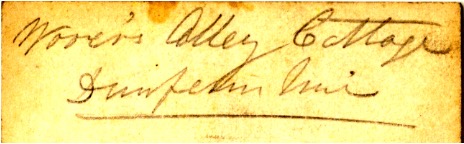 Wooer's Alley Cottage
Dunfermline